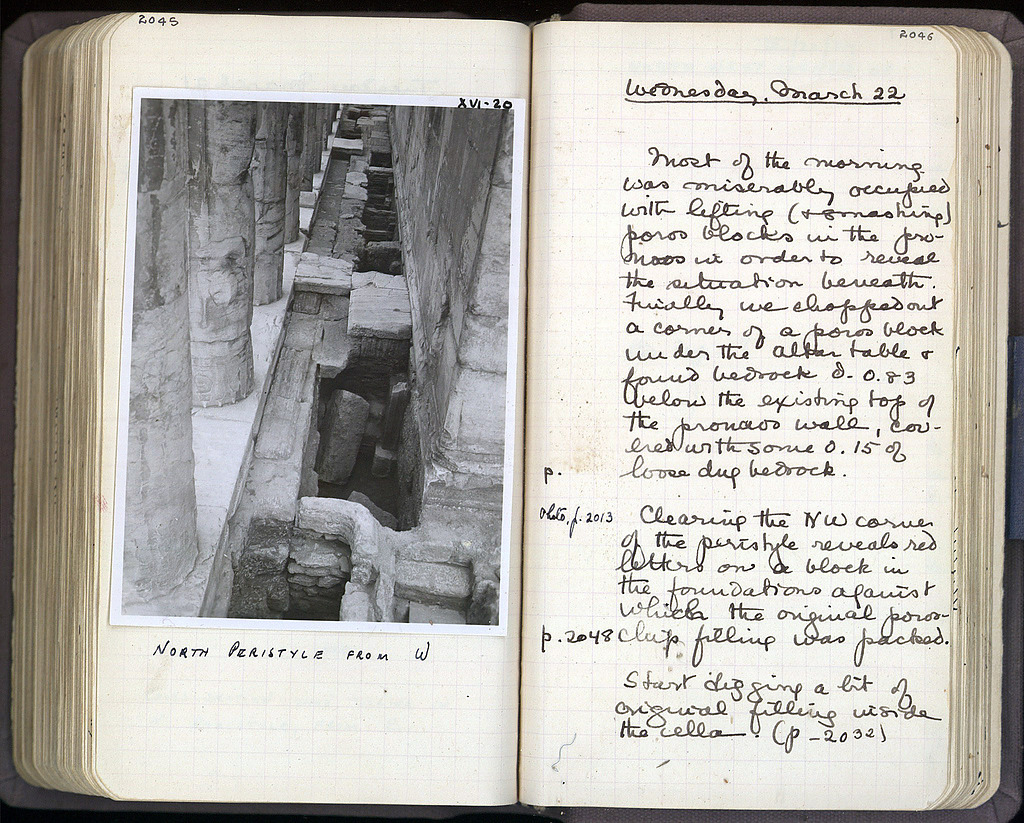 2045
XVI-20
NORTH PERISTYLE FROM W
2046
Wednesday. March 22
Most of the morning
was miserably occupied
with lifting (+ smashing)
poros blocks in the pro-
naos in order to reveal
the situation beneath.
Finally we chopped out
a corner of a poros block
under the altar table +
found bedrock d. 0.83
below the existing top of
the pronaos wall, cov-
ered with some 0.15 of
p. loose dug bedrock.
Photo, p. 2013 Clearing the NW corner
of the peristyle reveals red
letters on a block in
the foundations against
which the original poros
p. 2048 chip filling was packed.
Start digging a bit of
original filling inside
the cella. (p - 2032)